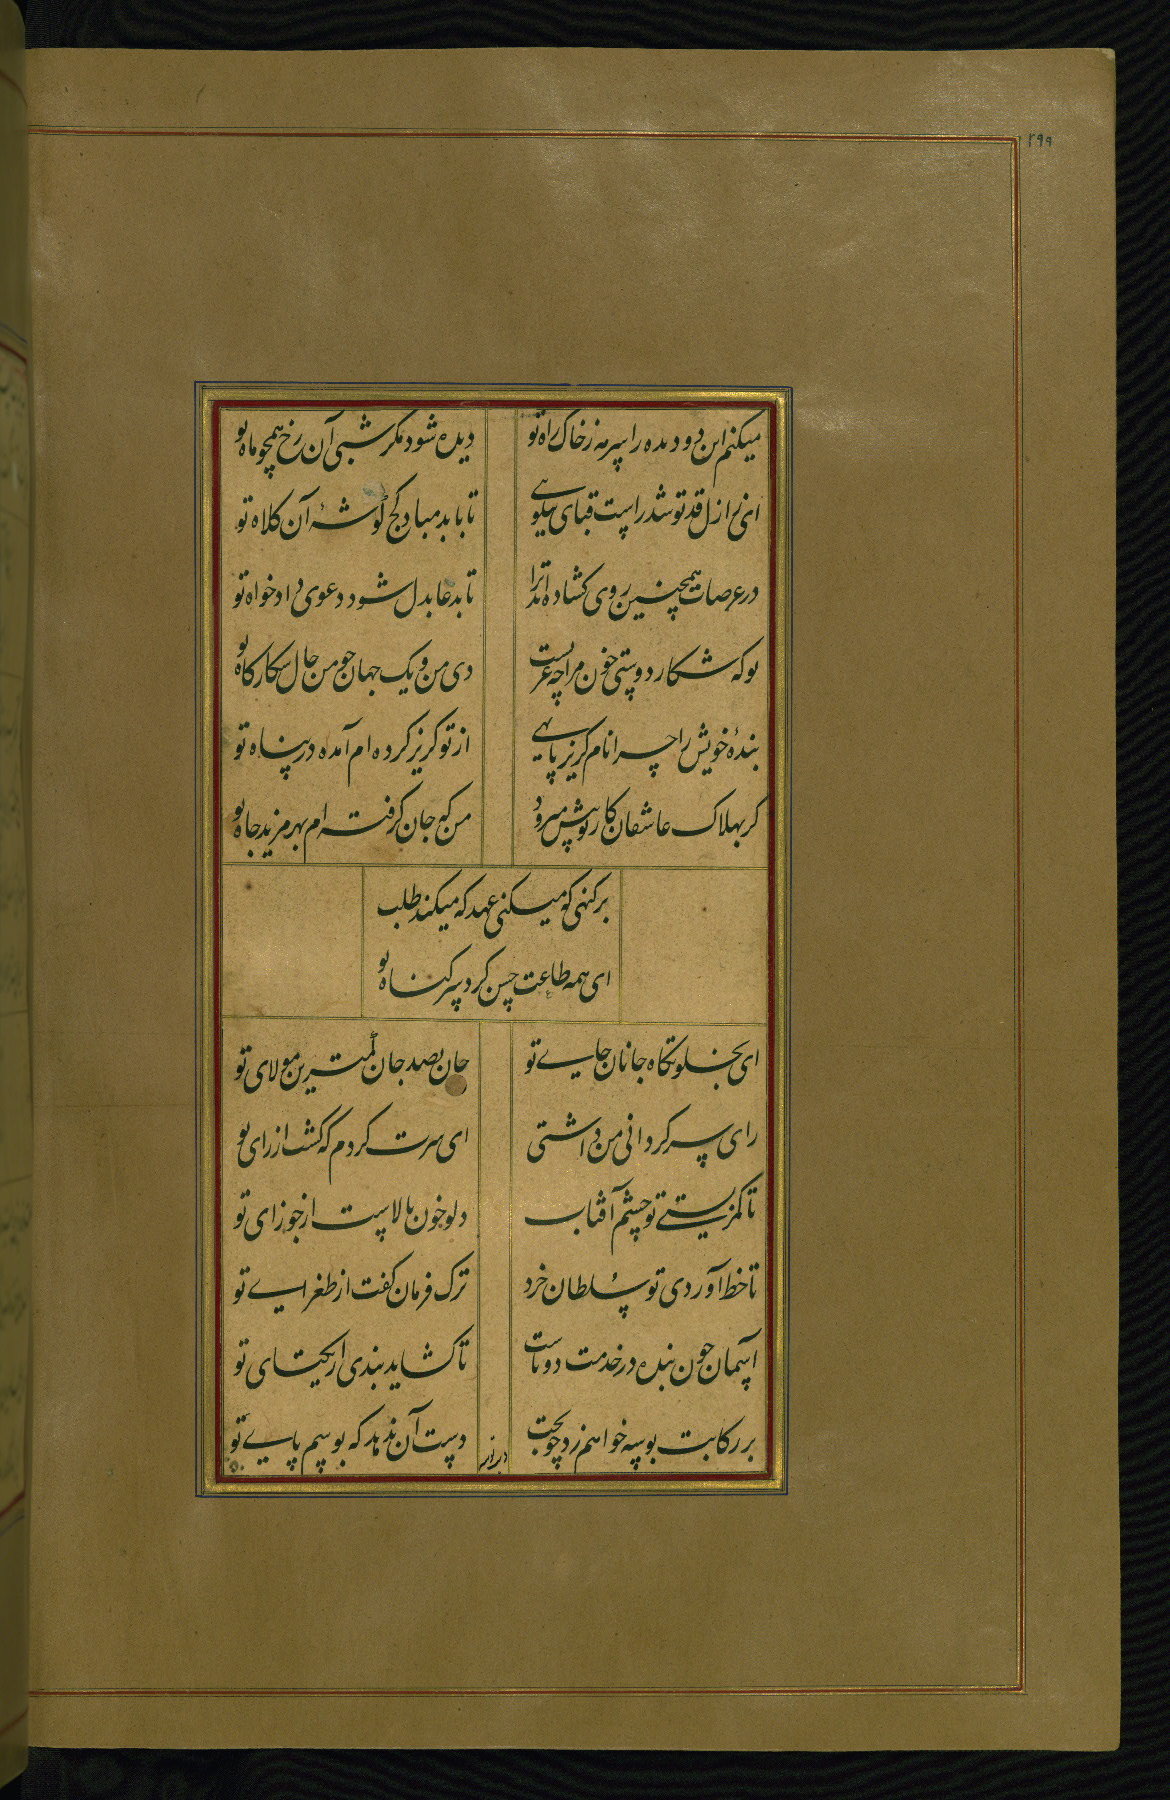 ۲۹۹
میکنم این دو دیده را سرمه ز خاک راه تو
دیده شود مکر شبی آن رخ همچو ماه تو
ای ز ازل قد تو شد راست قبای نیکویی
تا بابد مباد کج کوشهٔ آن کلاه تو
در عرصات همچنین روی کشاده اندرا
تا بدعا بدل شود دعوی داد خواه تو
بوکه شکار دوستی خون مرا چه عزتست
دی من و یک جهان چو من حال شکارکاه تو
بندهٔ خویش را چرا نام کریز پا نهی
از تو کریز کرده ام آمده در پناه تو
کر بهلاک عاشقان کار تو پیش میرود
من که جان کرفته ام بهر مزید جاه تو
بر کنهی کو میکنی عهد که میکند طلب
ای همه طاعت حسن کرد سر کناه تو
ای بخلوتکاه جانان جایی تو
جان بصد جان کمترین مولای تو
رای سر کردانی من داشتی
ای سرت کردم که کشت از رای تو
تا کمر بستی تو چشم آفتاب
دلو خون بالاست از جوزای تو
تا خط آوردی تو سلطان خرد
ترک فرمان کفت از طغرایی تو
آسمان چون بنده در خدمت دوتاست
تا کشاید بندی از یکتای تو
بر رکابت بوسه خواهم زد چو بخت
دست آن ندهد که بوسم پایی تو